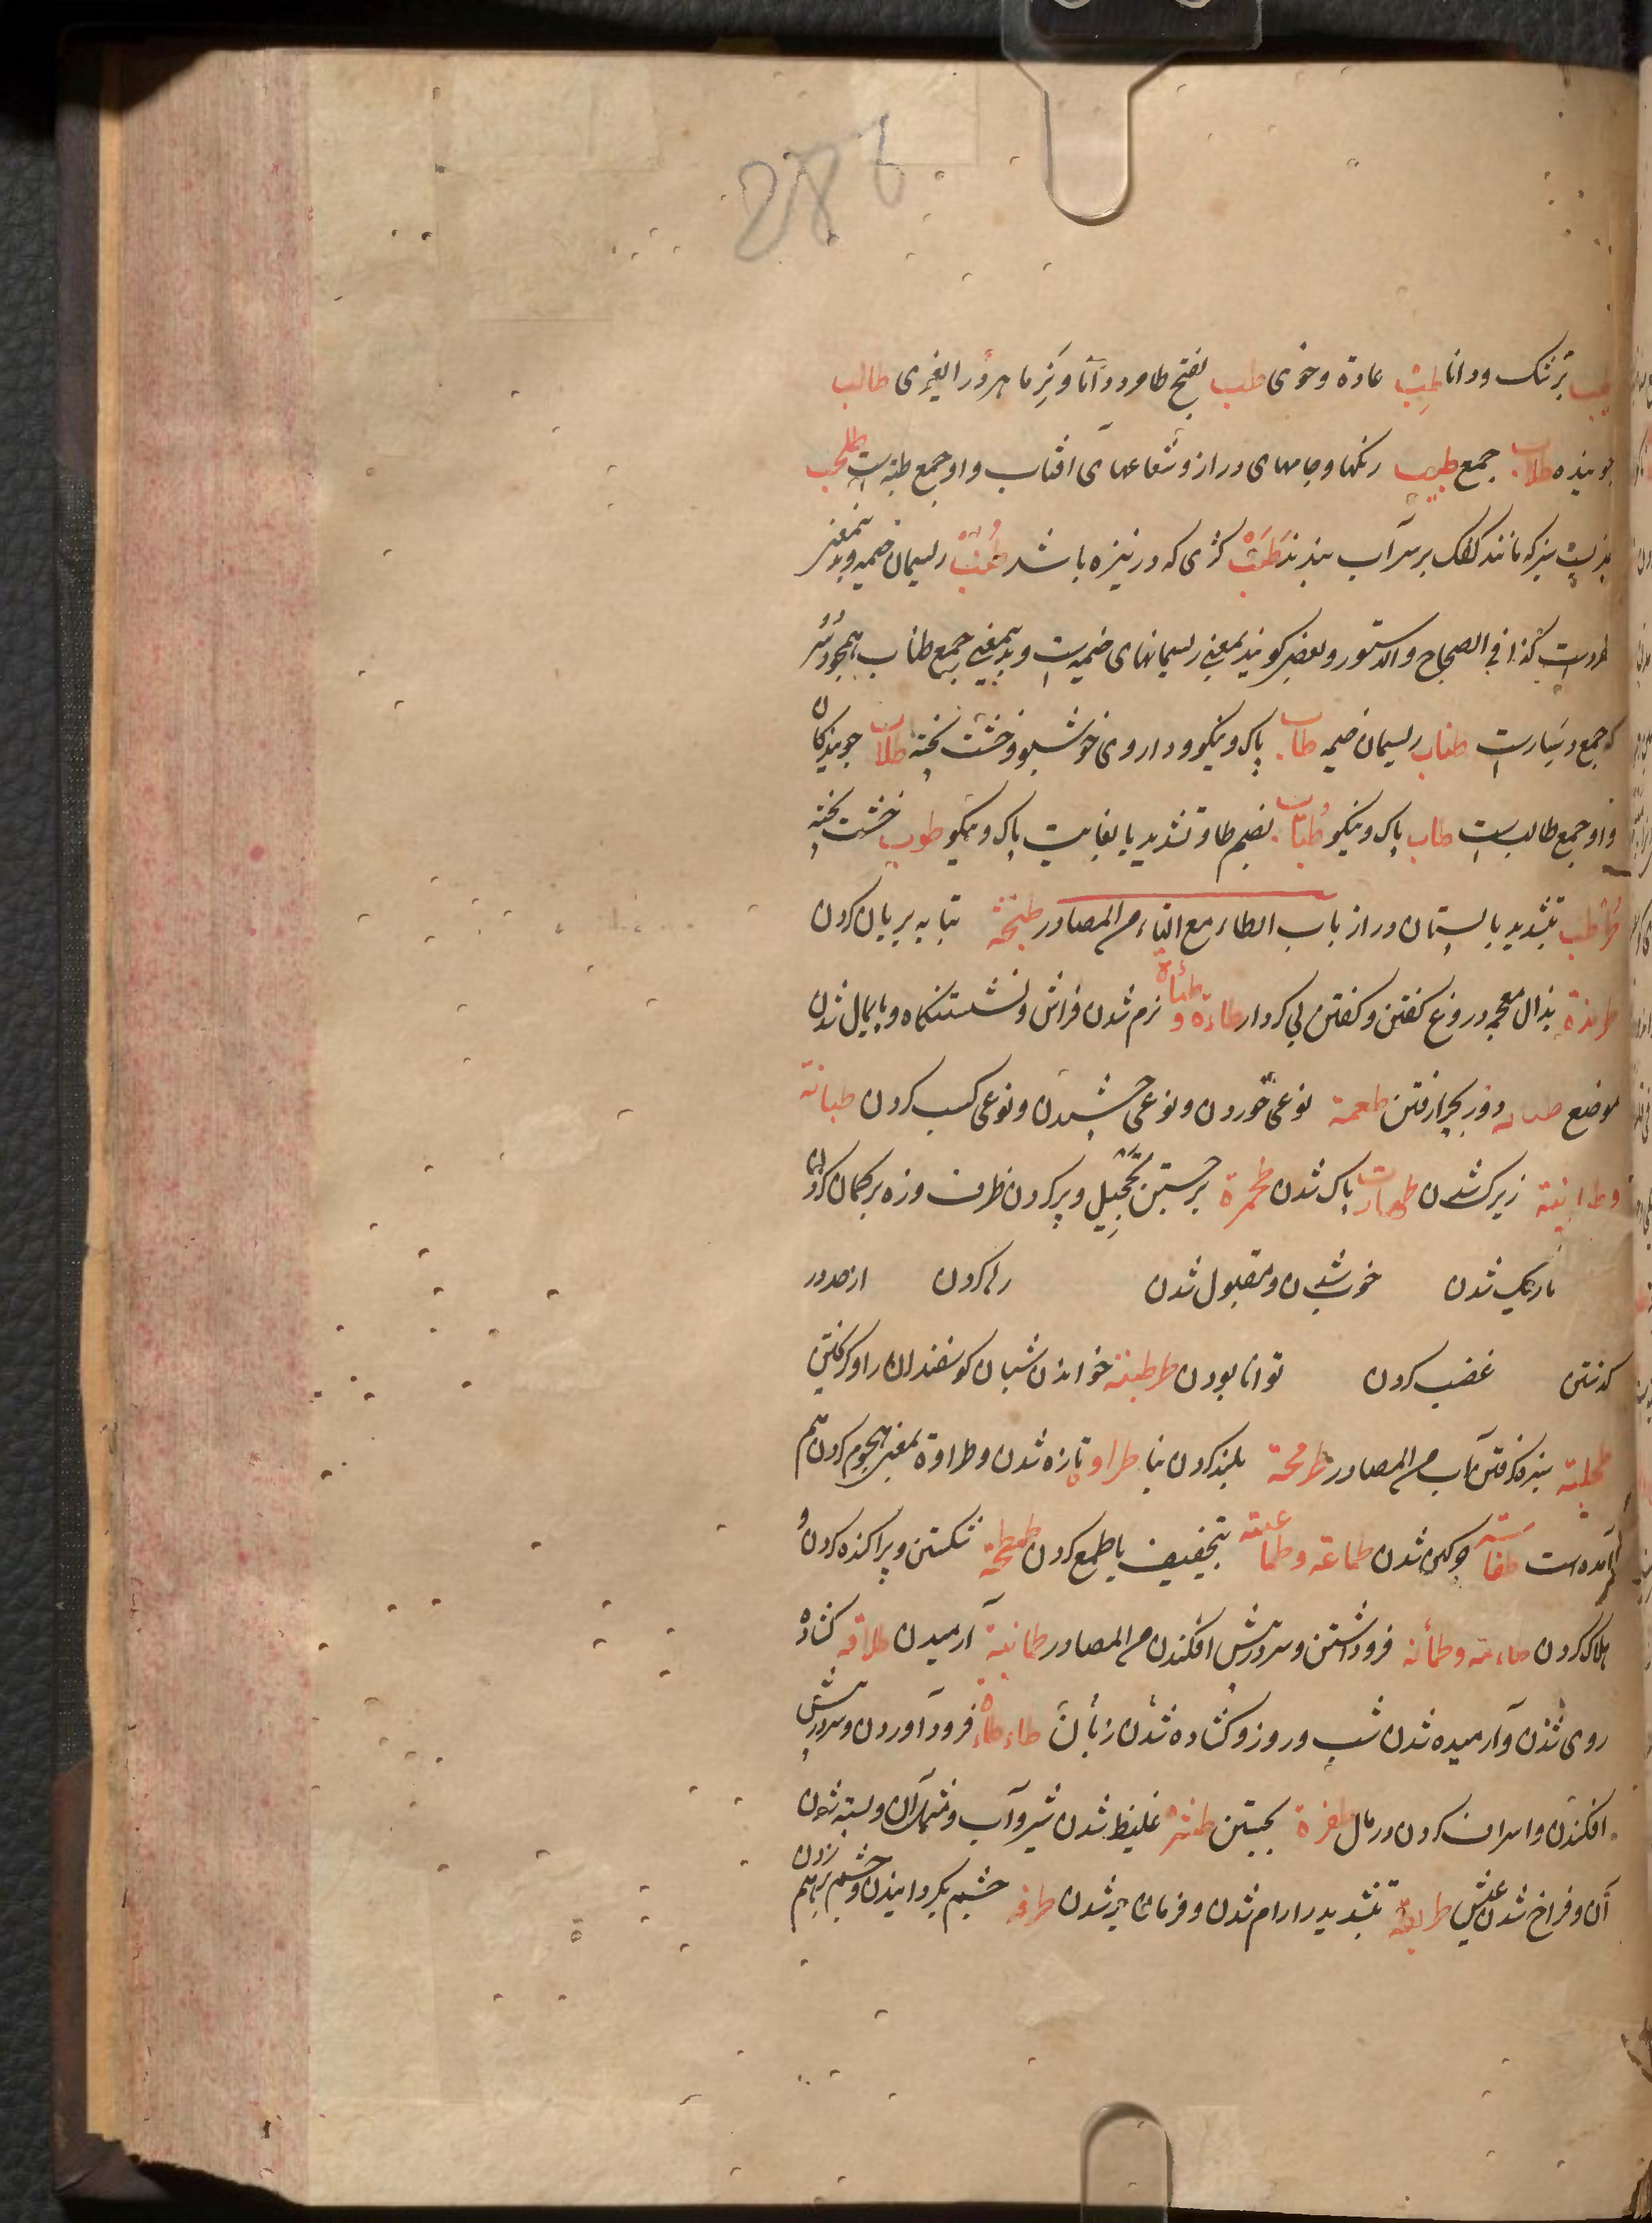 286
بزشک و دانا طِبّ عادة و خوی طب بفتح طا مرد دانا و نیز ماهر و در الغیری طالب
جوینده طلاب جمع طبیب رنکها و جامهای دراز و شعاعهای افتاب و او جمع طبه است طحلب
سبز که مانند کفک بر سر آب بندند طَنَب کژی که در نیزه باشد طُنُب ریسمان خیمه و بدین معنی
مفردست کذا فی الصحاح و الدستور و بعضی کویند بمعنی ریسمانهای خیمه است و بدین معنی جمع طناب همچو دُسُر
که جمع دسارست طناب ریسمان خیمه طاب پاک و نیکو و داروی خوشبو و خشت پخته طلاب جویندکان
و او جمع طالب است طاب پاک و نیکو طُیّاب بضم طا و تشدید یا بغایت پاک و نیکو طوب خشت پخته
طُرْطُب بتشدید با پستان دراز باب الطاء مع التاء من المصادر طبخة بتابه بریان کردن
طرمذة بذال معجمه دروغ کفتن و کفتن بی کردار طاءة و طئاة نرم شدن فراش و نشستنکاه و پایمال شدن
موضع دور بچرا رفتن طعمة نوعی خوردن و نوعی چشیدن و نوعی کسب کردن طبانة
و طبانیة زیرک شدن طهارت پاک شدن طحمرة برجستن بتعجیل و پر کردن ظرف و زه بر کمان کردن
تاریک شدن خوش شدن و مقبول شدن رها کردن از حد در
کذشتن غضب کردن توانا بودن طرطبة خواندن شبان کوسفندان را و کرفتن
طحلبة سبزه کرفتن آب من المصادر طرمحة بلند کردن بنا طراوة تازه شدن و طراوة بمعنی هجوم کردن هم
آمده است طفاسة چرکین شدن طماعة و طماعیة بتخفیف یا طمع کردن طحطحة شکستن و پراکنده کردن و
هلاک کردن طاءمنة و طمأنة فرو داشتن و سر در پیش افکندن من المصادر طمانینة آرمیدن طلاقة کشاده
روی شدن و آرمیده شدن شب و روز و کشاده شدن زبان طاءطاة فرود آوردن و سر در پیش
افکندن و اسراف کردن در مال طفرة بجستن طثرة غلیظ شدن شیر و آب و مثل آن و بسته شدن
آن و فراخ شدن عیش بتشدید را رام شدن و فرمان بر شدن طرفة چشم بکردانیدن و چشم بر هم زدن